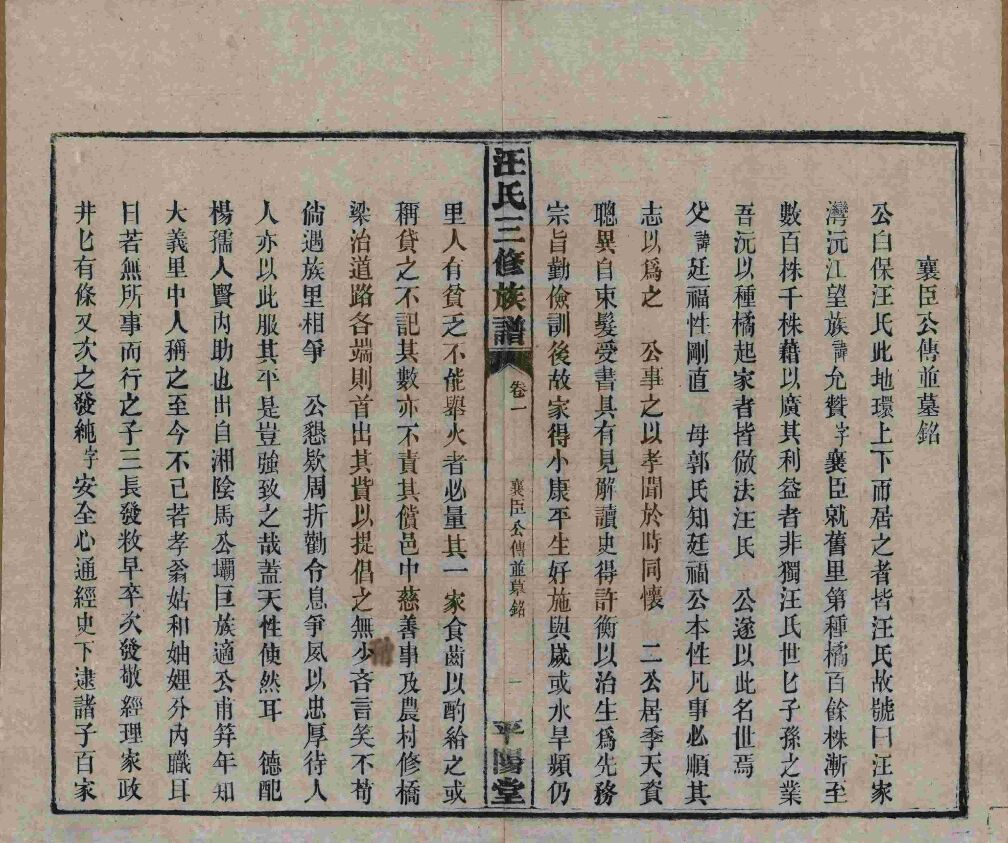 襄臣公傳並墓銘
公白保汪氏此地環上下而居之者皆汪氏故號曰汪家
灣沅江望族諱允贊字襄臣就舊里第種橘百餘株漸至
數百株千株藉以廣其利益者非獨汪氏世匕子孫之業
吾沅以種橘起家者皆倣法汪氏 公遂以此名世焉
父諱廷福性剛直 母郭氏知廷福公本性凡事必順其
志以爲之 公事之以孝聞於時同懷 二公居季天資
聰異自束髮受書具有見解讀史得許衡以治生爲先務
宗旨勤儉訓後故家得小康平生好施與歲或水旱頻仍
汪氏三修族譜
卷一
襄臣公傳並墓銘
一
平陽堂
里人有貧乏不能舉火者必量其一家食齒以酌給之或
稱貸之不記其數亦不責其償邑中慈善事及農村修橋
梁治道路各端則首出其貲以提倡之無少吝言笑不苟
倘遇族里相爭 公懇欵周折勸令息爭夙以忠厚待人
人亦以此服其平是豈強致之哉蓋天性使然耳 德配
楊孺人賢內助也出自湘陰馬公壩巨族適公甫笄年知
大義里中人稱之至今不已若孝翁姑和妯娌分內職耳
曰若無所事而行之子三長發敉早卒次發敬經理家政
井匕有條又次之發純字安全心通經史下逮諸子百家